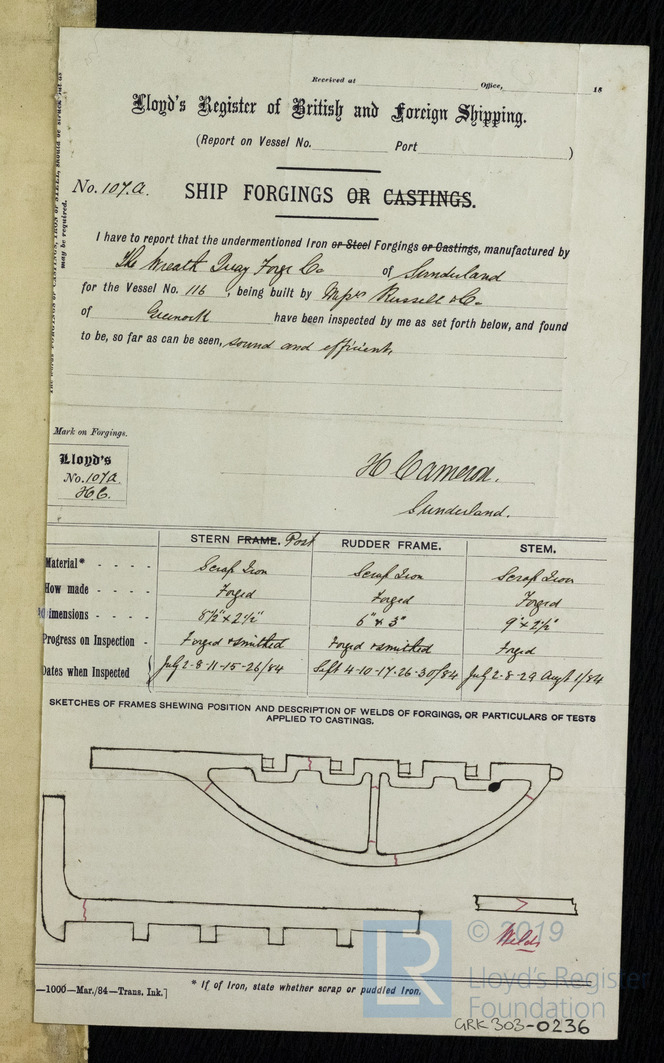 Received at Office, 18
Lloyd's Register of British and Foreign Shipping.
(Report on Vessel No. Port )
No. 107.A. SHIP FORGINGS OR CASTINGS.
I have to report that the undermentioned Iron or Steel Forgings or Castings, manufactured by
The Wreath Quay Forge Co of Sunderland
for the Vessel No. 116, being built by Messrs Russell & Co.
of Greenock have been inspected by me as set forth below, and found
to be, so far as can be seen, sound and efficient,
may be required.
Mark on Forgings.
Lloyd's
No. 107A
H.C.
H Cameron.
Sunderland.
STERN FRAME. Post RUDDER FRAME. STEM.
Material* - - - - Scrap Iron Scrap Iron Scrap Iron
How made - - - - Forged Forged Forged
Dimensions - - - - 8½" x 2½" 6" x 3" 9" x 2½"
Progress on Inspection - Forged & smithed Forged & smithed Forged
Dates when Inspected July 2-8-11-15-26/84 Sept 4-10-17-26-30/84 July 2-8-29 Augt 1/84
SKETCHES OF FRAMES SHEWING POSITION AND DESCRIPTION OF WELDS OF FORGINGS, OR PARTICULARS OF TESTS
APPLIED TO CASTINGS.
Welds
—1000—Mar./84—Trans. Ink.]
* If of Iron, state whether scrap or puddled Iron.
© 2019
LR
Lloyd's Register
Foundation
GRK 303-0236